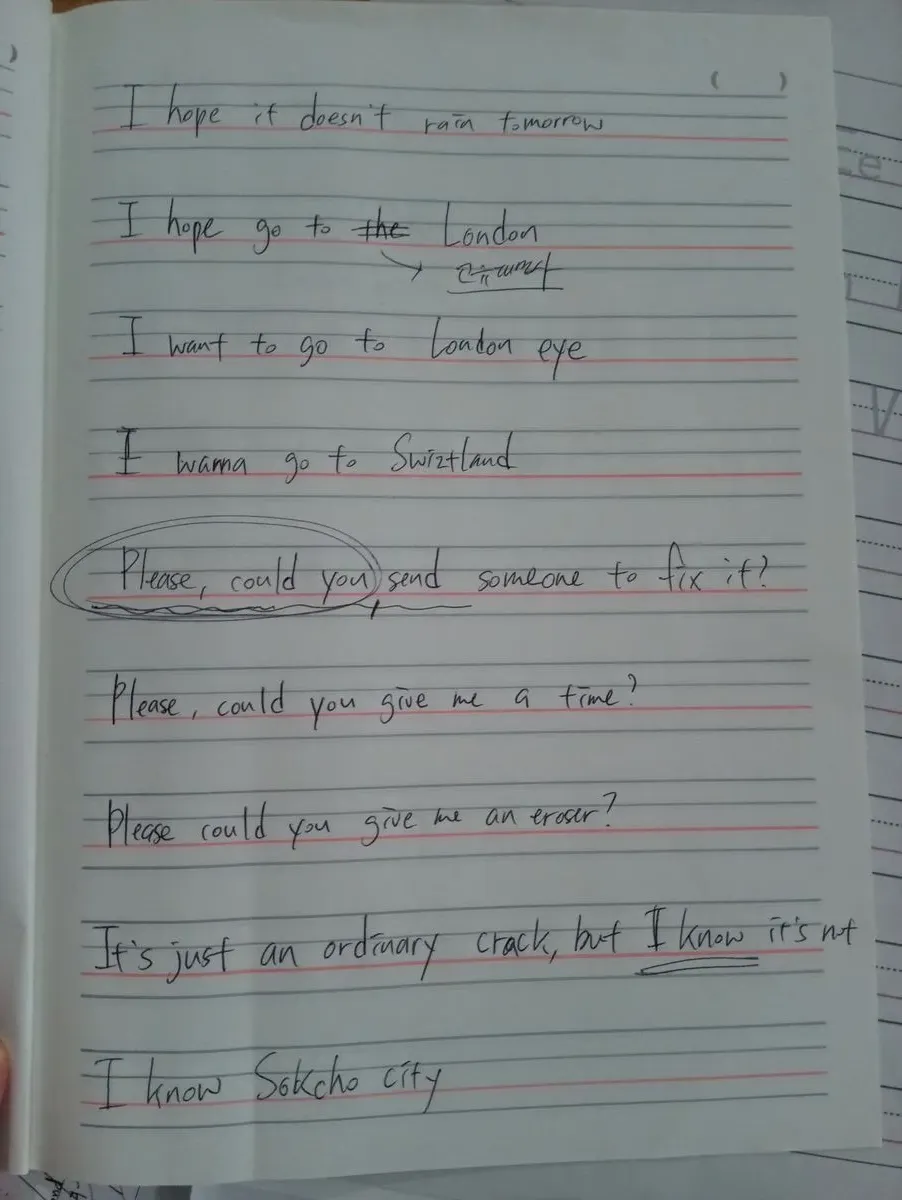 ( )
I hope it doesn't rain tomorrow
I hope go to the London
I want to go to London eye
I wanna go to Swiztland
Please, could you send someone to fix it?
Please, could you give me a time?
Please could you give me an eroser?
It's just an ordinary crack, but I know it's not
I know Sokcho city